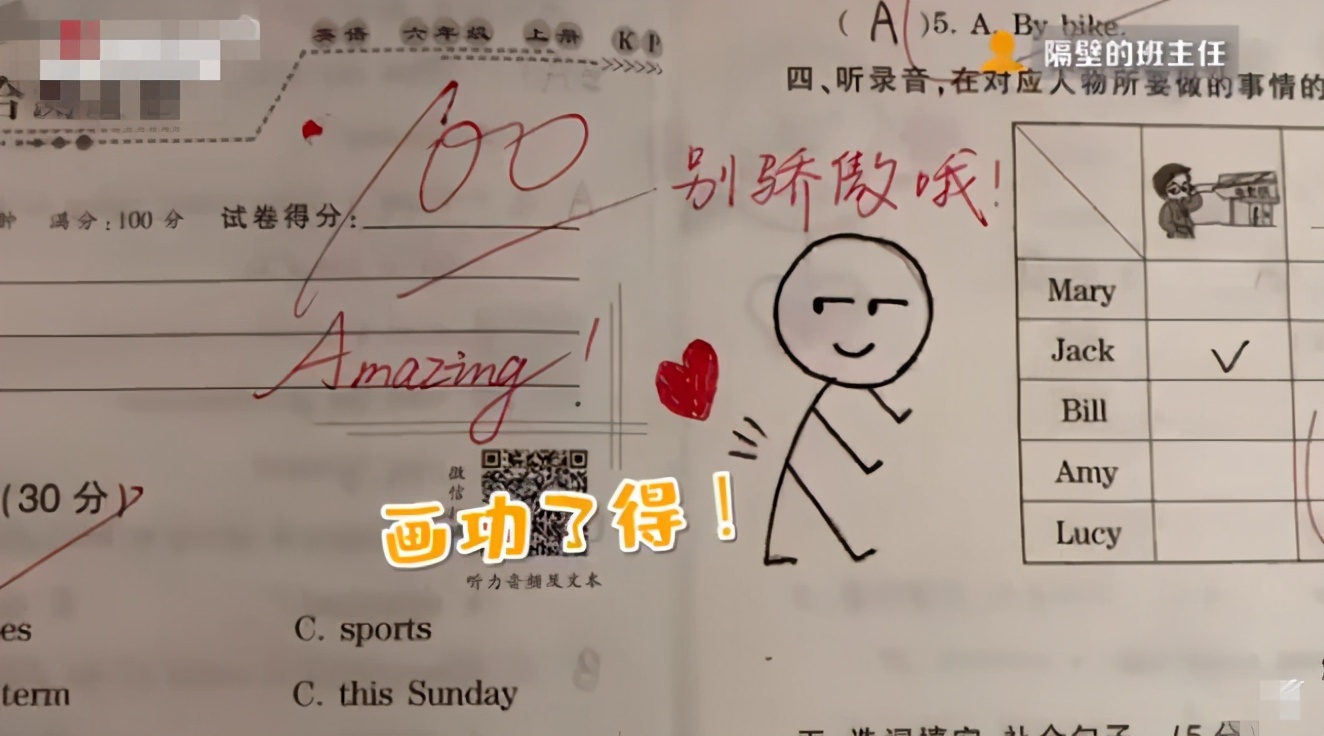 英语 六年级 上册 KP
100
满分:100 分 试卷得分:
Amazing!
(30 分)
微信
画功了得!
听力音频及文本
es
C. sports
term
C. this Sunday
(A)5. A. By bike.
隔壁的班主任
四、听录音,在对应人物所要做的事情的
别骄傲哦!
Mary
Jack ✓
Bill
Amy
Lucy
五、选词填空,补全句子。(5分